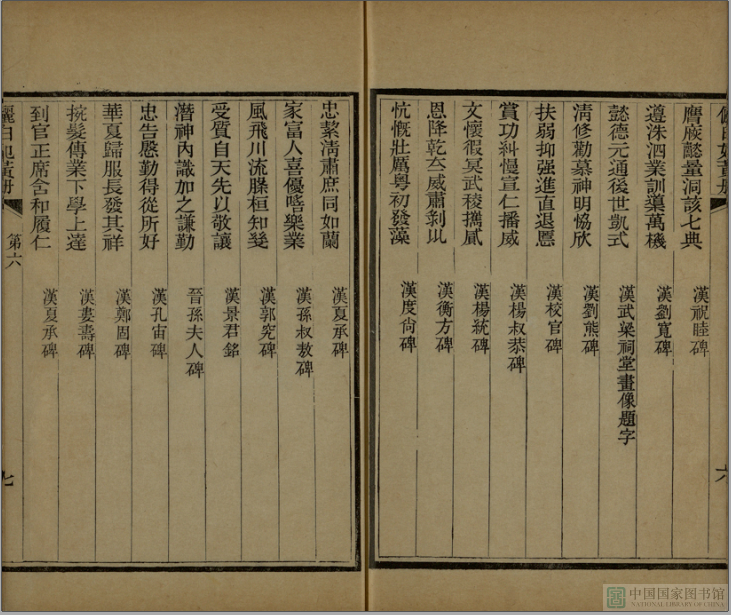 儷白妃黃册
六
膺厥懿量洞該七典 漢祝睦碑
遵洙泗業訓導萬機 漢劉寬碑
懿德元通後世凱式 漢武梁祠堂畫像題字
淸修勸慕神明恊欣 漢劉熊碑
扶弱抑强進直退慝 漢校官碑
賞功糾慢宣仁播威 漢楊叔恭碑
文懷徦冥武稜攜貳 漢楊統碑
恩降乾威肅剥巛 漢衡方碑
忼慨壯厲粤初發藻 漢度尙碑
忠絜淸肅庶同如蘭 漢夏承碑
家富人喜優嘻樂業 漢孫叔敖碑
風飛川流桓知 漢郭究碑
受質自天先以敬讓 漢景君銘
潛神內識加之謙勤 晉孫夫人碑
忠告慇勤得從所好 漢孔宙碑
華夏歸服長發其祥 漢鄭固碑
捖髮傳業下學上達 漢婁壽碑
到官正席含和履仁 漢夏承碑
儷白妃黃册 第六
七
中国国家图书馆
NATIONAL LIBRARY OF CHINA